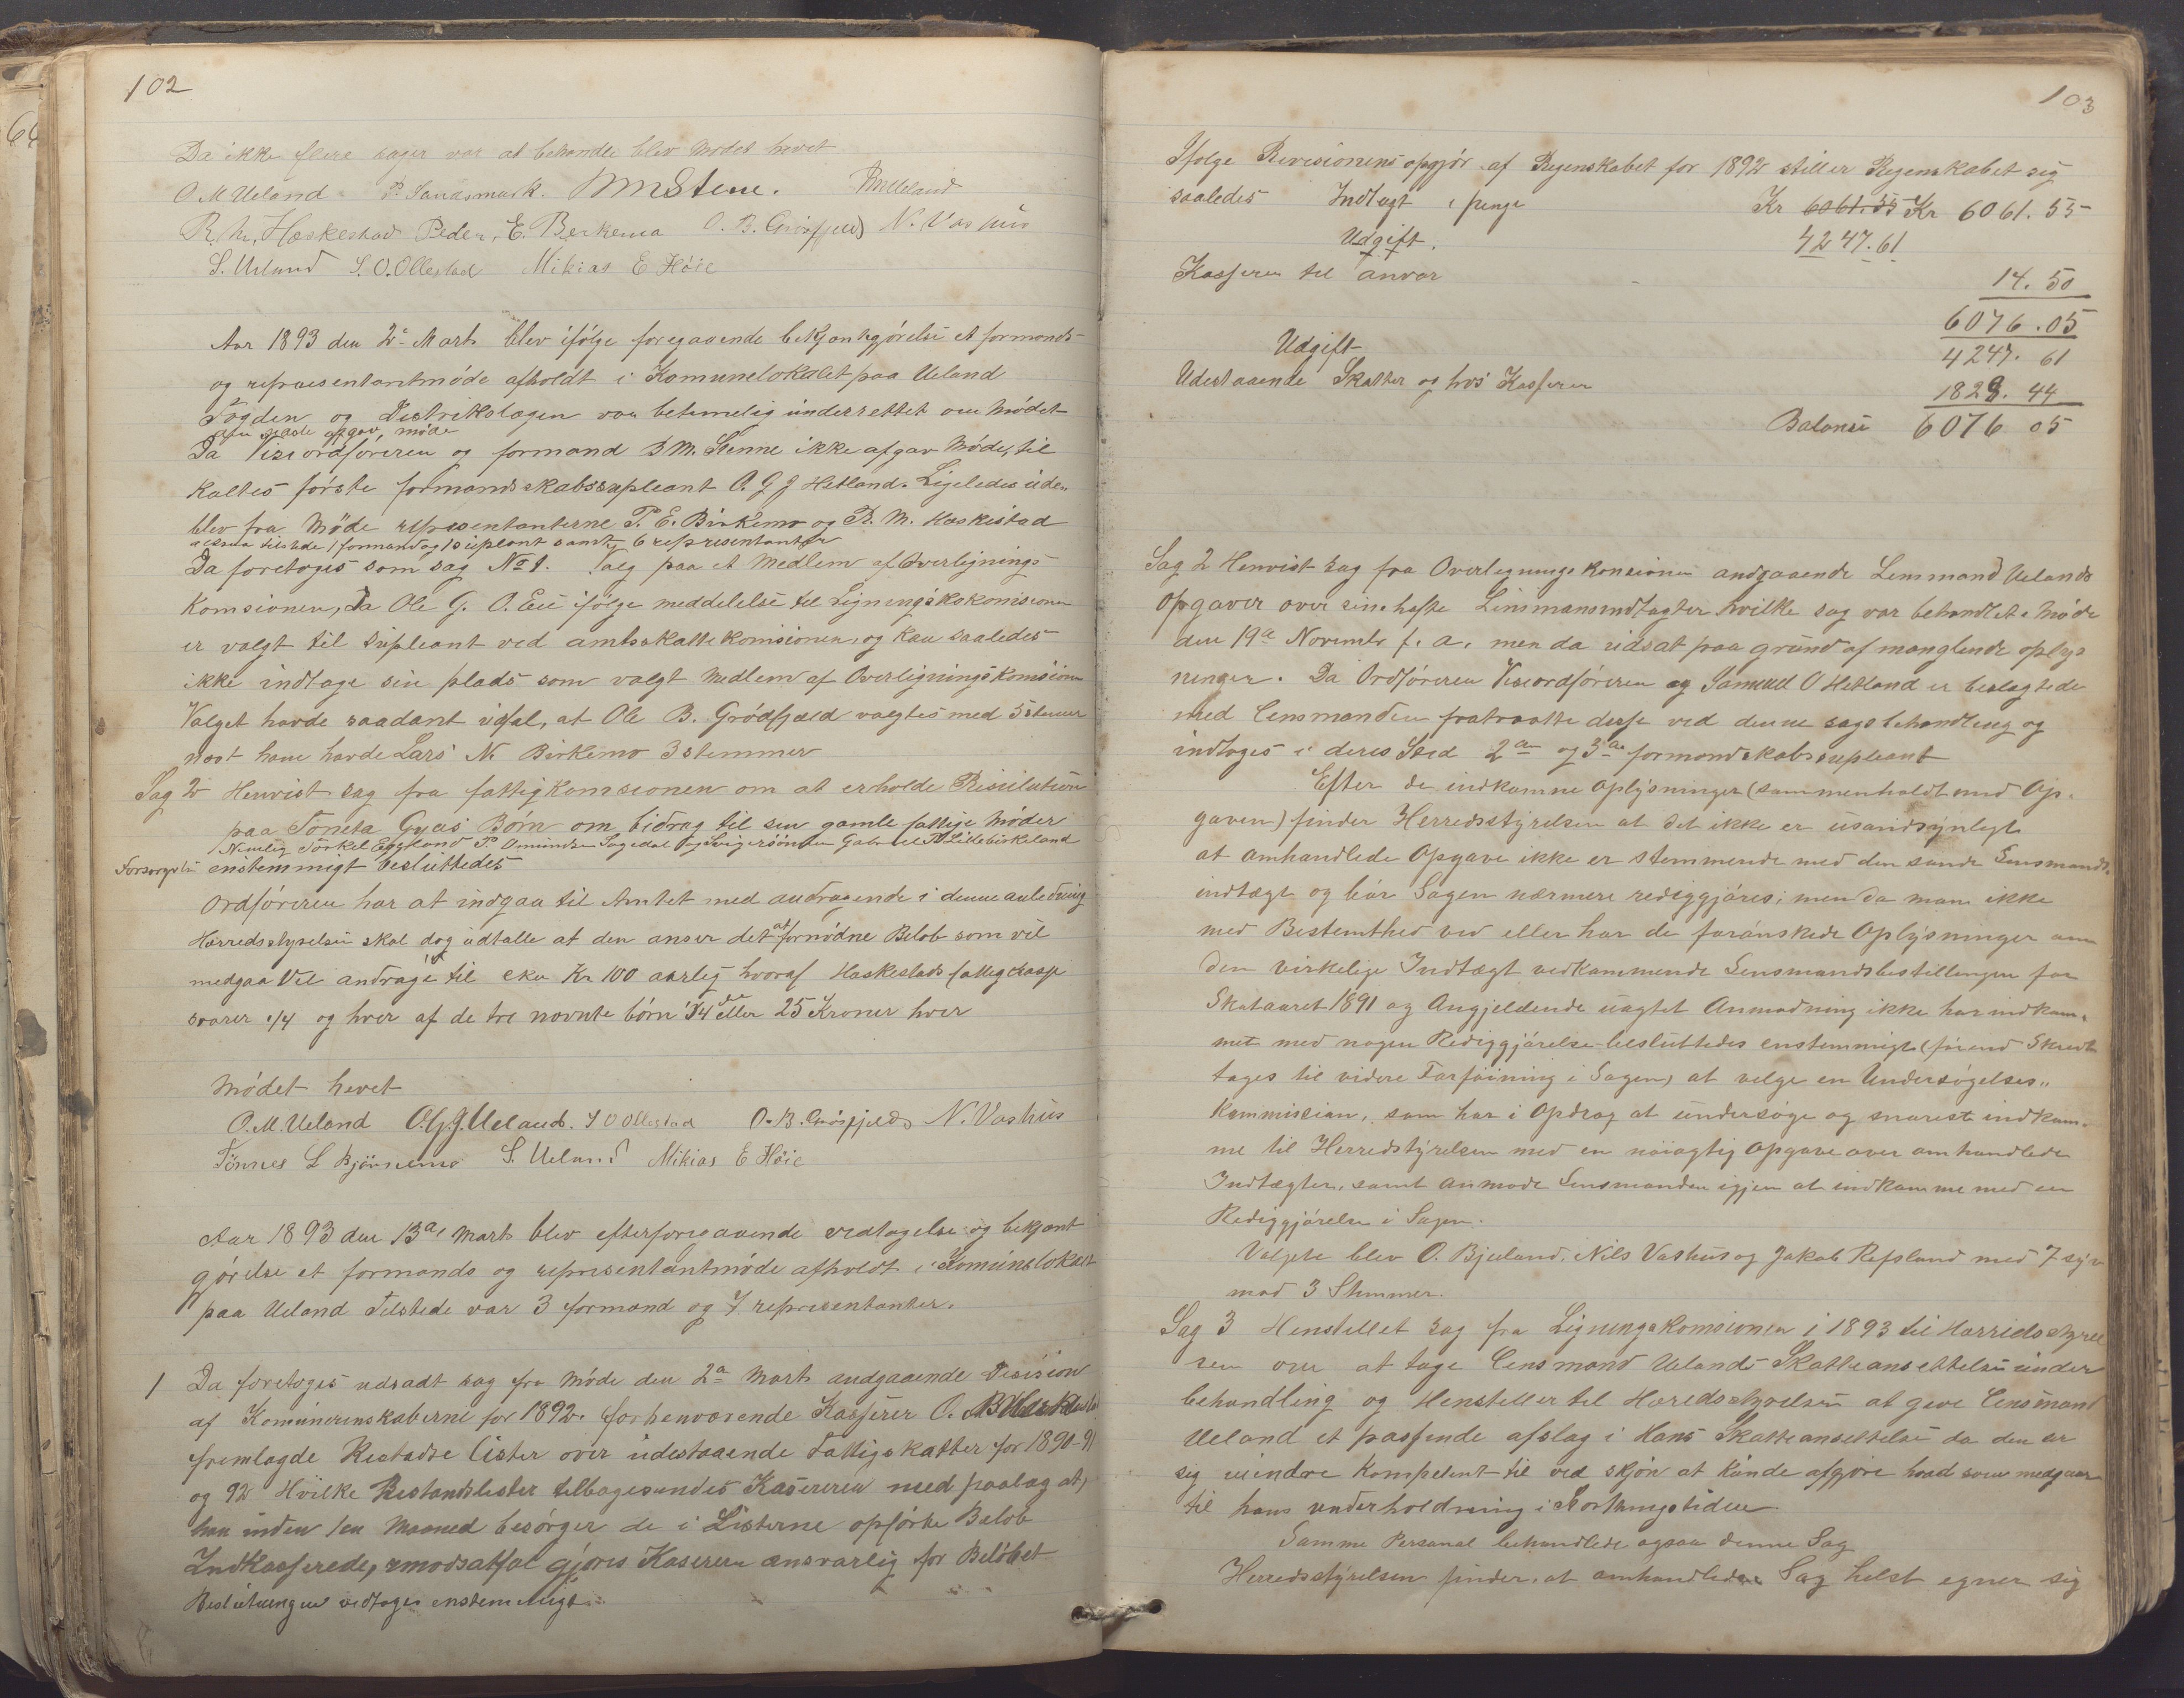 102
Da ikke flere sager var at behandle blev Mødet hevet
O. M Ueland P. Sandsmark. Stene.
R. M. Hæskestad Peder. E. Berkemo O. B. Grøsfjeld N. Vashus
S. Ueland S. O. Ollestad Mikias E Høie
Aar 1893 den 2den Marts blev ifølge foregaaende bekjentgjørelse et formands-
og repræsentantmøde afholdt i Komunelokalet paa Ueland
Fogden og Distriktslægen var betimelig underrettet om Mødet
sidste afgav møde
Da Viseordføreren og formand S M. Stenne ikke afgav Møde, til
kaltes første formandsskabssupleant O. G J Hetland. Ligeledes ude
blev fra Møde representanterne P. E. Birkemo og R. M. Hæskestad
altsaa tilstede 1 formand og 1 supleant samt 6 representanter
Da foretoges som sag No 1. Valg paa et Medlem af Overlignings
Komsionen, Da Ole G. O. Eie ifølge meddelelse til Ligningskskomisionen
er valgt til supleant ved amtsskattekomisionen, og kan saaledes
ikke indtage sin plads som valgt Medlem af Overligningskomsionen
Valget havde saadant udfal, at Ole B. Grødfjæld valgtes med 5 stemmer
næst ham havde Lars N. Birkemo 3 stemmer
Sag 2 Henvist sag fra fattigkomsionen om at erholde Resulution
paa Toneta Gyas Børn om bidrag til sin gamle fattige Moder
Nemlig Torkel Eigeland P. Omundsen Sagedal og Svigersønnen Gabriel Lillebirkeland
Forsorgelse enstemmigt besluttedes
Ordføreren har at indgaa til Amtet med andragende i denne anledning
Hærredsstyrelsen skal dog udtalle at den anser det at fornødne Beløb som vil
medgaa Vil andrage til cka Kr 100 aarlig hvoraf Haskestads fattigcasse
svarer 1/4 og hver af de tre nevnte børn 1/4 de eller 25 Kroner hver
Mødet hevet
O. M. Ueland O. G. J. Ueland. S O Ollestad O. B. Grøsfjeld N. Vashus
Tønnes L Bjørnemo S. Ueland Mikias E Høie
Aar 1893 den 13de Marts blev efterforegaaende vedtagelse og bekjent
gørelse et formands og representantmøde afholdt i Komunelokalet
paa Ueland Tilstede var 3 formænd og 7 representanter.
1 Da foretoges udsadt sag fra Møde den 2den Marts angaaende Decision
af Komunerenskaberne for 1892. forhenværende Kasserer O.
fremlagde Restadse lister over udestaaende Fattigskatter for 1890-91
og 92 Hvilke Restandslister tilbagesendes Kasereren med paalag at,
han inden 1en Maaned besørger de i Listerne opførte Beløb
Indkasserede, i modsatfal gjøres Kasereren ansvarlig for Beløbet
Beslutningen vedtoges enstemmigt.
103
Ifølge Revisionens opgjør af Regenskabet for 1892 stiller Regenskabet sig
saaledes Indtægt i penge Kr 6061.55 Kr 6061. 55
Udgift. 4247.61
Kasseren til ansvar 14. 50
6076. 05
Udgift 4247. 61
Udestaaende Skatter og hos Kasseren 1828. 44
Balanse 6076 05
Sag 2 Henvist sag fra Overlegningskonsionen andgaaende Lensmand Uelands
opgaver over sine hafte Linsmansindtægter hvilke sag var behandlet i Møde
den 19de Novembr f. a. men da udsat paa grund af manglende oplys
ninger. Da Ordføreren Viseordføreren og Samuel O Hetland er beslægtede
med Lensmanden fratraatte disse ved denne sags behandling og
indtoges i deres Sted 2den og 3die formandskabssupleant
Efter de indkomne Oplysninger (sammenholdt med Op-
gaven) finder Herredsstyrelsen at det ikke er usandsynligt
at omhandlede Opgave ikke er stemmende med den sande Lensmands
indtægt og bør Sagen nærmere rediggjøres; men da man ikke
med Bestemthed ved eller har de forønskede Oplysninger om
den virkelige Indtægt vedkommende Lensmandsbestillingen for
Skataaret 1891 og Angjeldende uagtet Anmodning ikke har indkom-
met med nogen Rediggjørelse besluttedes enstemmigt (førend Skridt
tages til videre Forføining i Sagen) at velge en Undersøgelses-
Kommission, som har i Opdrag at undersøge og snarest indkom-
me til Herredstyrelsen med en nøiagtig Opgave over omhandlede
Indtægter, samt anmode Lensmanden igjen at indkomme med en
Rediggjørelse i Sagen.
Valgte blev O. Bjuland, Nils Vashus og Jakob Refsland med 7 syv
mod 3 Stemmer.
Sag 3 Henstillet sag fra Ligningskomsionen i 1893 til Harridsstyrel
sen om at tage Lensmand Uelands Skatteansettelse under
behandling og Henstiller til Heredsstyrelsen at give Lensmand
Ueland et passende afslag i Hans Skatteansettelse da den er
sig mindre Kompetent til ved skjøn at kunde afgøre hvad som medgaar
til hans underholdning i Stortingstiden.
Samme Personal behandlede ogsaa denne Sag
Herredsstyrelsen finder, at omhandlede Sag helst egner sig